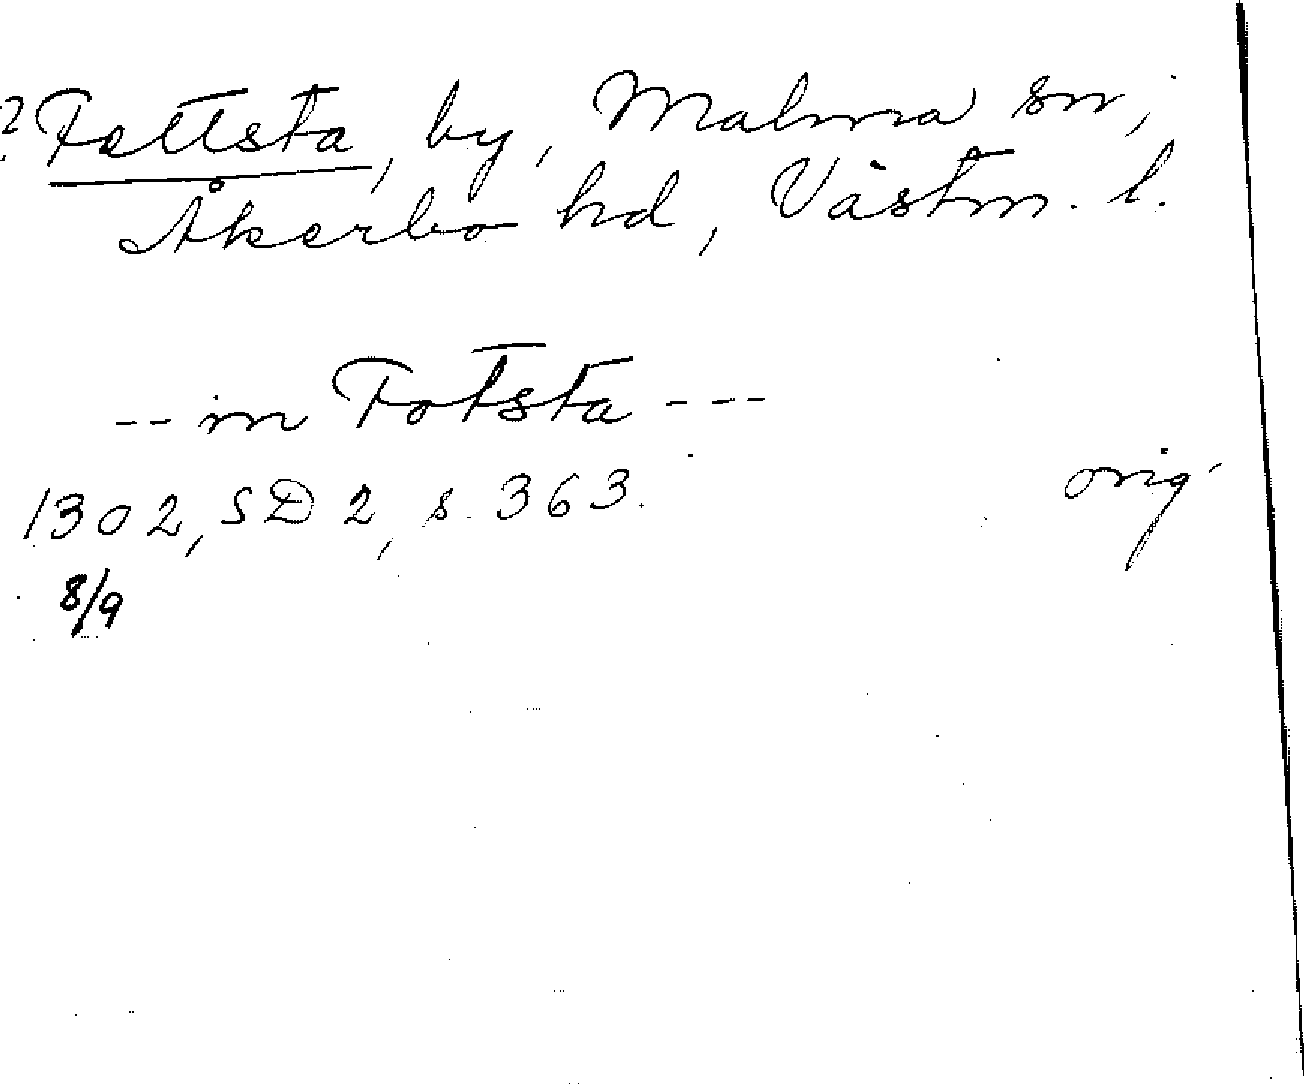 ? Fettsta, by, Malma sn,
Åkerbo hd, Västm. l.
-- in Fotsta ---
1302, SD 2, s. 363.
orig.
8/9